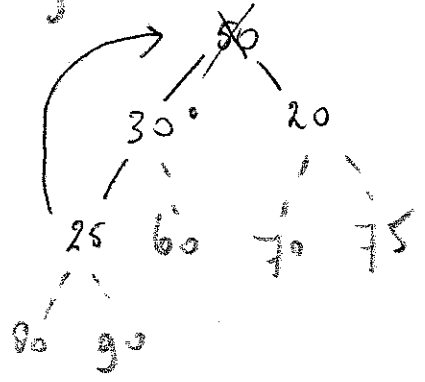 50
30 20
25 60 70 75
80 90